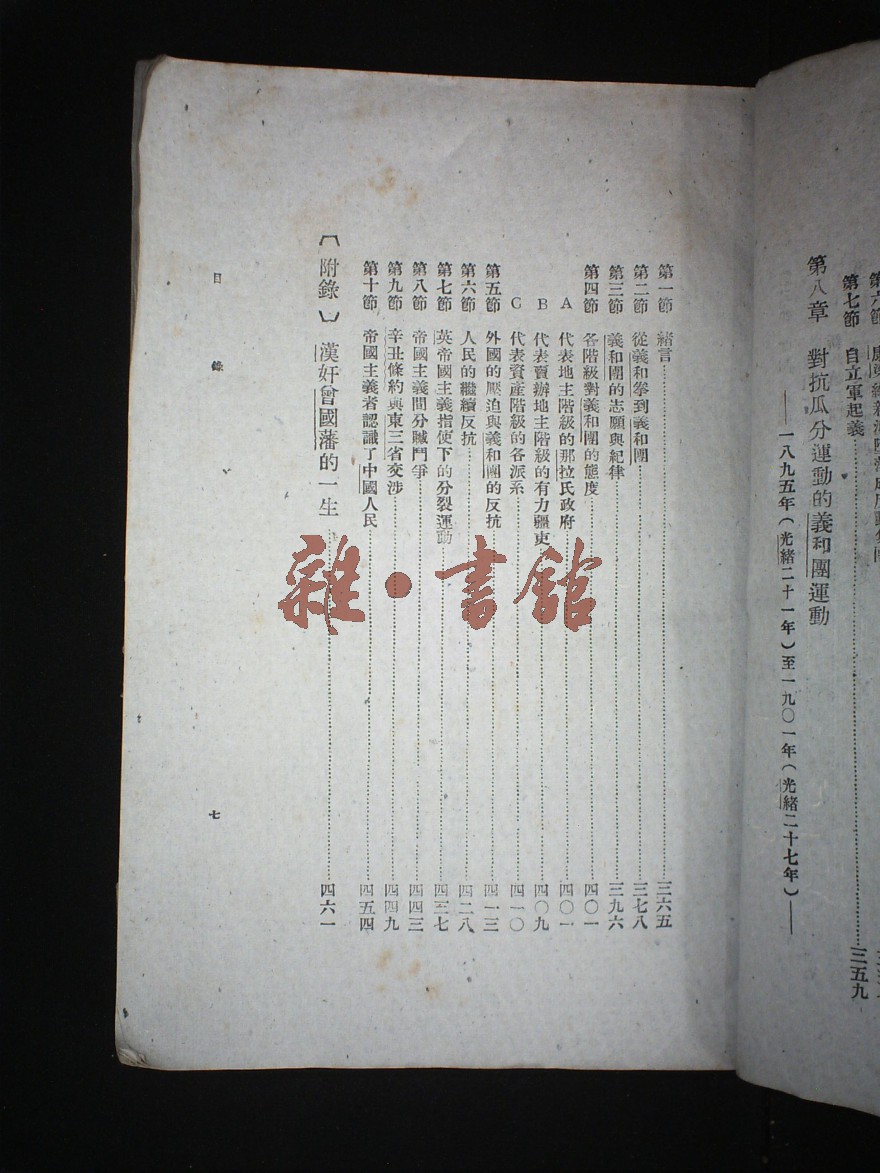 第七節 自立軍起義……三五九
第八章 對抗瓜分運動的義和團運動
——一八九五年(光緒二十一年)至一九〇一年(光緒二十七年)——
第一節 緒言……三六五
第二節 從義和拳到義和團……三七八
第三節 義和團的志願與紀律……三九六
第四節 各階級對義和團的態度……四〇一
A 代表地主階級的那拉氏政府……四〇一
B 代表買辦地主階級的有力疆吏……四〇九
C 代表資產階級的各派系……四一〇
第五節 外國的壓迫與義和團的反抗……四一三
第六節 人民的繼續反抗……四二八
第七節 英帝國主義指使下的分裂運動……四三七
第八節 帝國主義間分贓鬥爭……四四三
第九節 辛丑條約與東三省交涉……四四九
第十節 帝國主義者認識了中國人民……四五四
〔附錄〕 漢奸曾國藩的一生……四六一
目錄
七
雜·書館